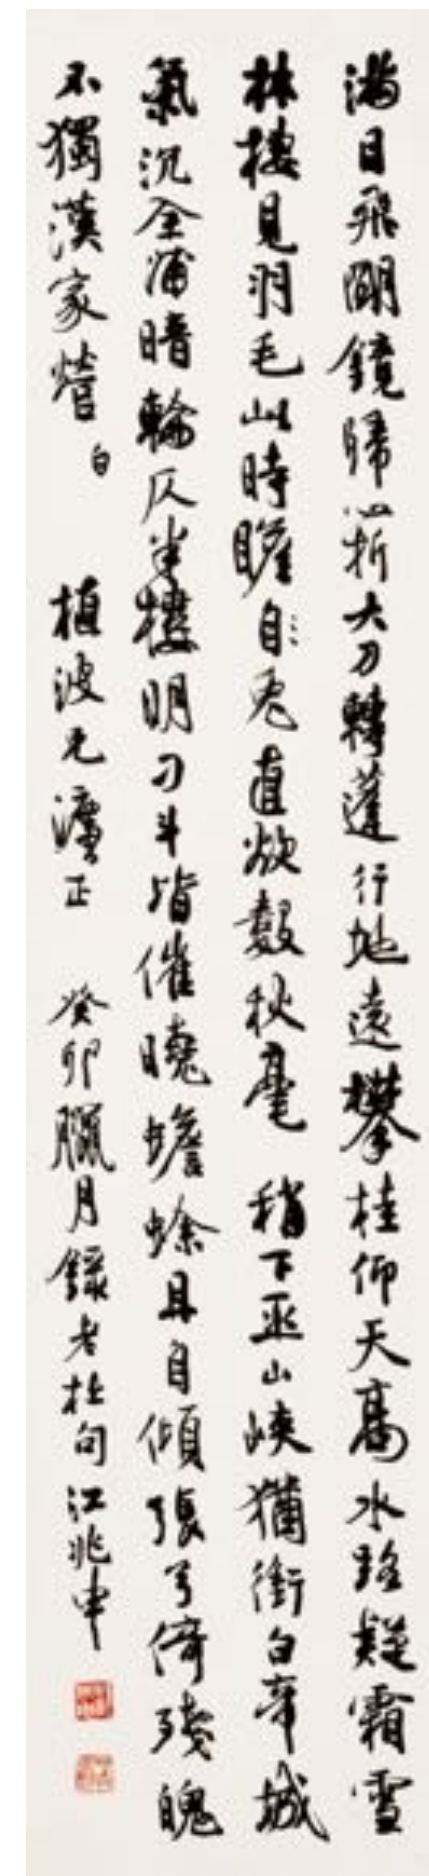 滿目飛朙鏡歸心折大刀轉蓬行地遠攀桂仰天高水路疑霜雪
林棲見羽毛此時瞻自兔直欲數秋毫稍下巫山峽猶銜白帝城
氣沉全浦暗輪仄半樓明刁斗皆催曉蟾蜍且自傾張弓倚殘魄
不獨漢家營 白 植波兄灋正 癸卯臘月錄老杜句 江兆申